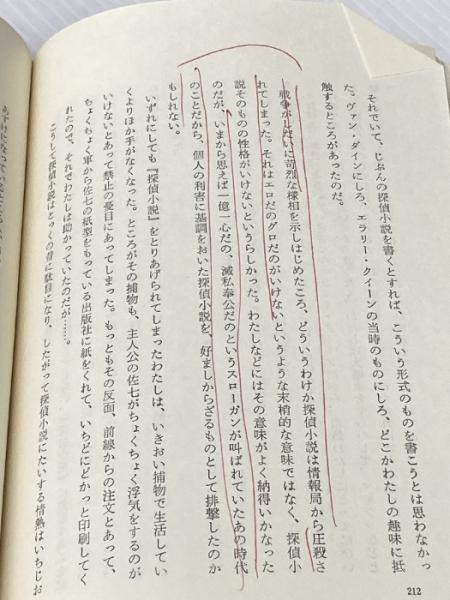 それでいて、じぶんの探偵小説を書くとすれば、こういう形式のものを書こうとは思わなかっ
た。ヴァン・ダインにしろ、エラリー・クイーンの当時のものにしろ、どこかわたしの趣味に抵
触するところがあったのだ。
戦争がしだいに苛烈な様相を示しはじめたころ、どういうわけか探偵小説は情報局から圧殺さ
れてしまった。それはエロだのグロだのがいけないというような末梢的な意味ではなく、探偵小
説そのものの性格がいけないというらしかった。わたしなどにはその意味がよく納得いかなかった
のだが、いまから思えば一億一心だの、滅私奉公だのというスローガンが叫ばれていたあの時代
のことだから、個人の利害に基調をおいた探偵小説を、好ましからざるものとして排撃したのか
もしれない。
いずれにしても『探偵小説』をとりあげられてしまったわたしは、いきおい捕物で生活してい
くよりほか手がなくなった。ところがその捕物も、主人公の佐七がちょくちょく浮気をするのが
いけないとあって禁止の憂目にあってしまった。もっともその反面、前線からの注文とあって、
ちょくちょく軍から佐七の紙型をもっている出版社に紙をくれて、いちどにどかっと印刷してく
れたので、それでわたしは助かっていたのだが……。
こうして探偵小説はとっくの昔に駄目になり、したがって探偵小説にたいする情熱はいちじお
212